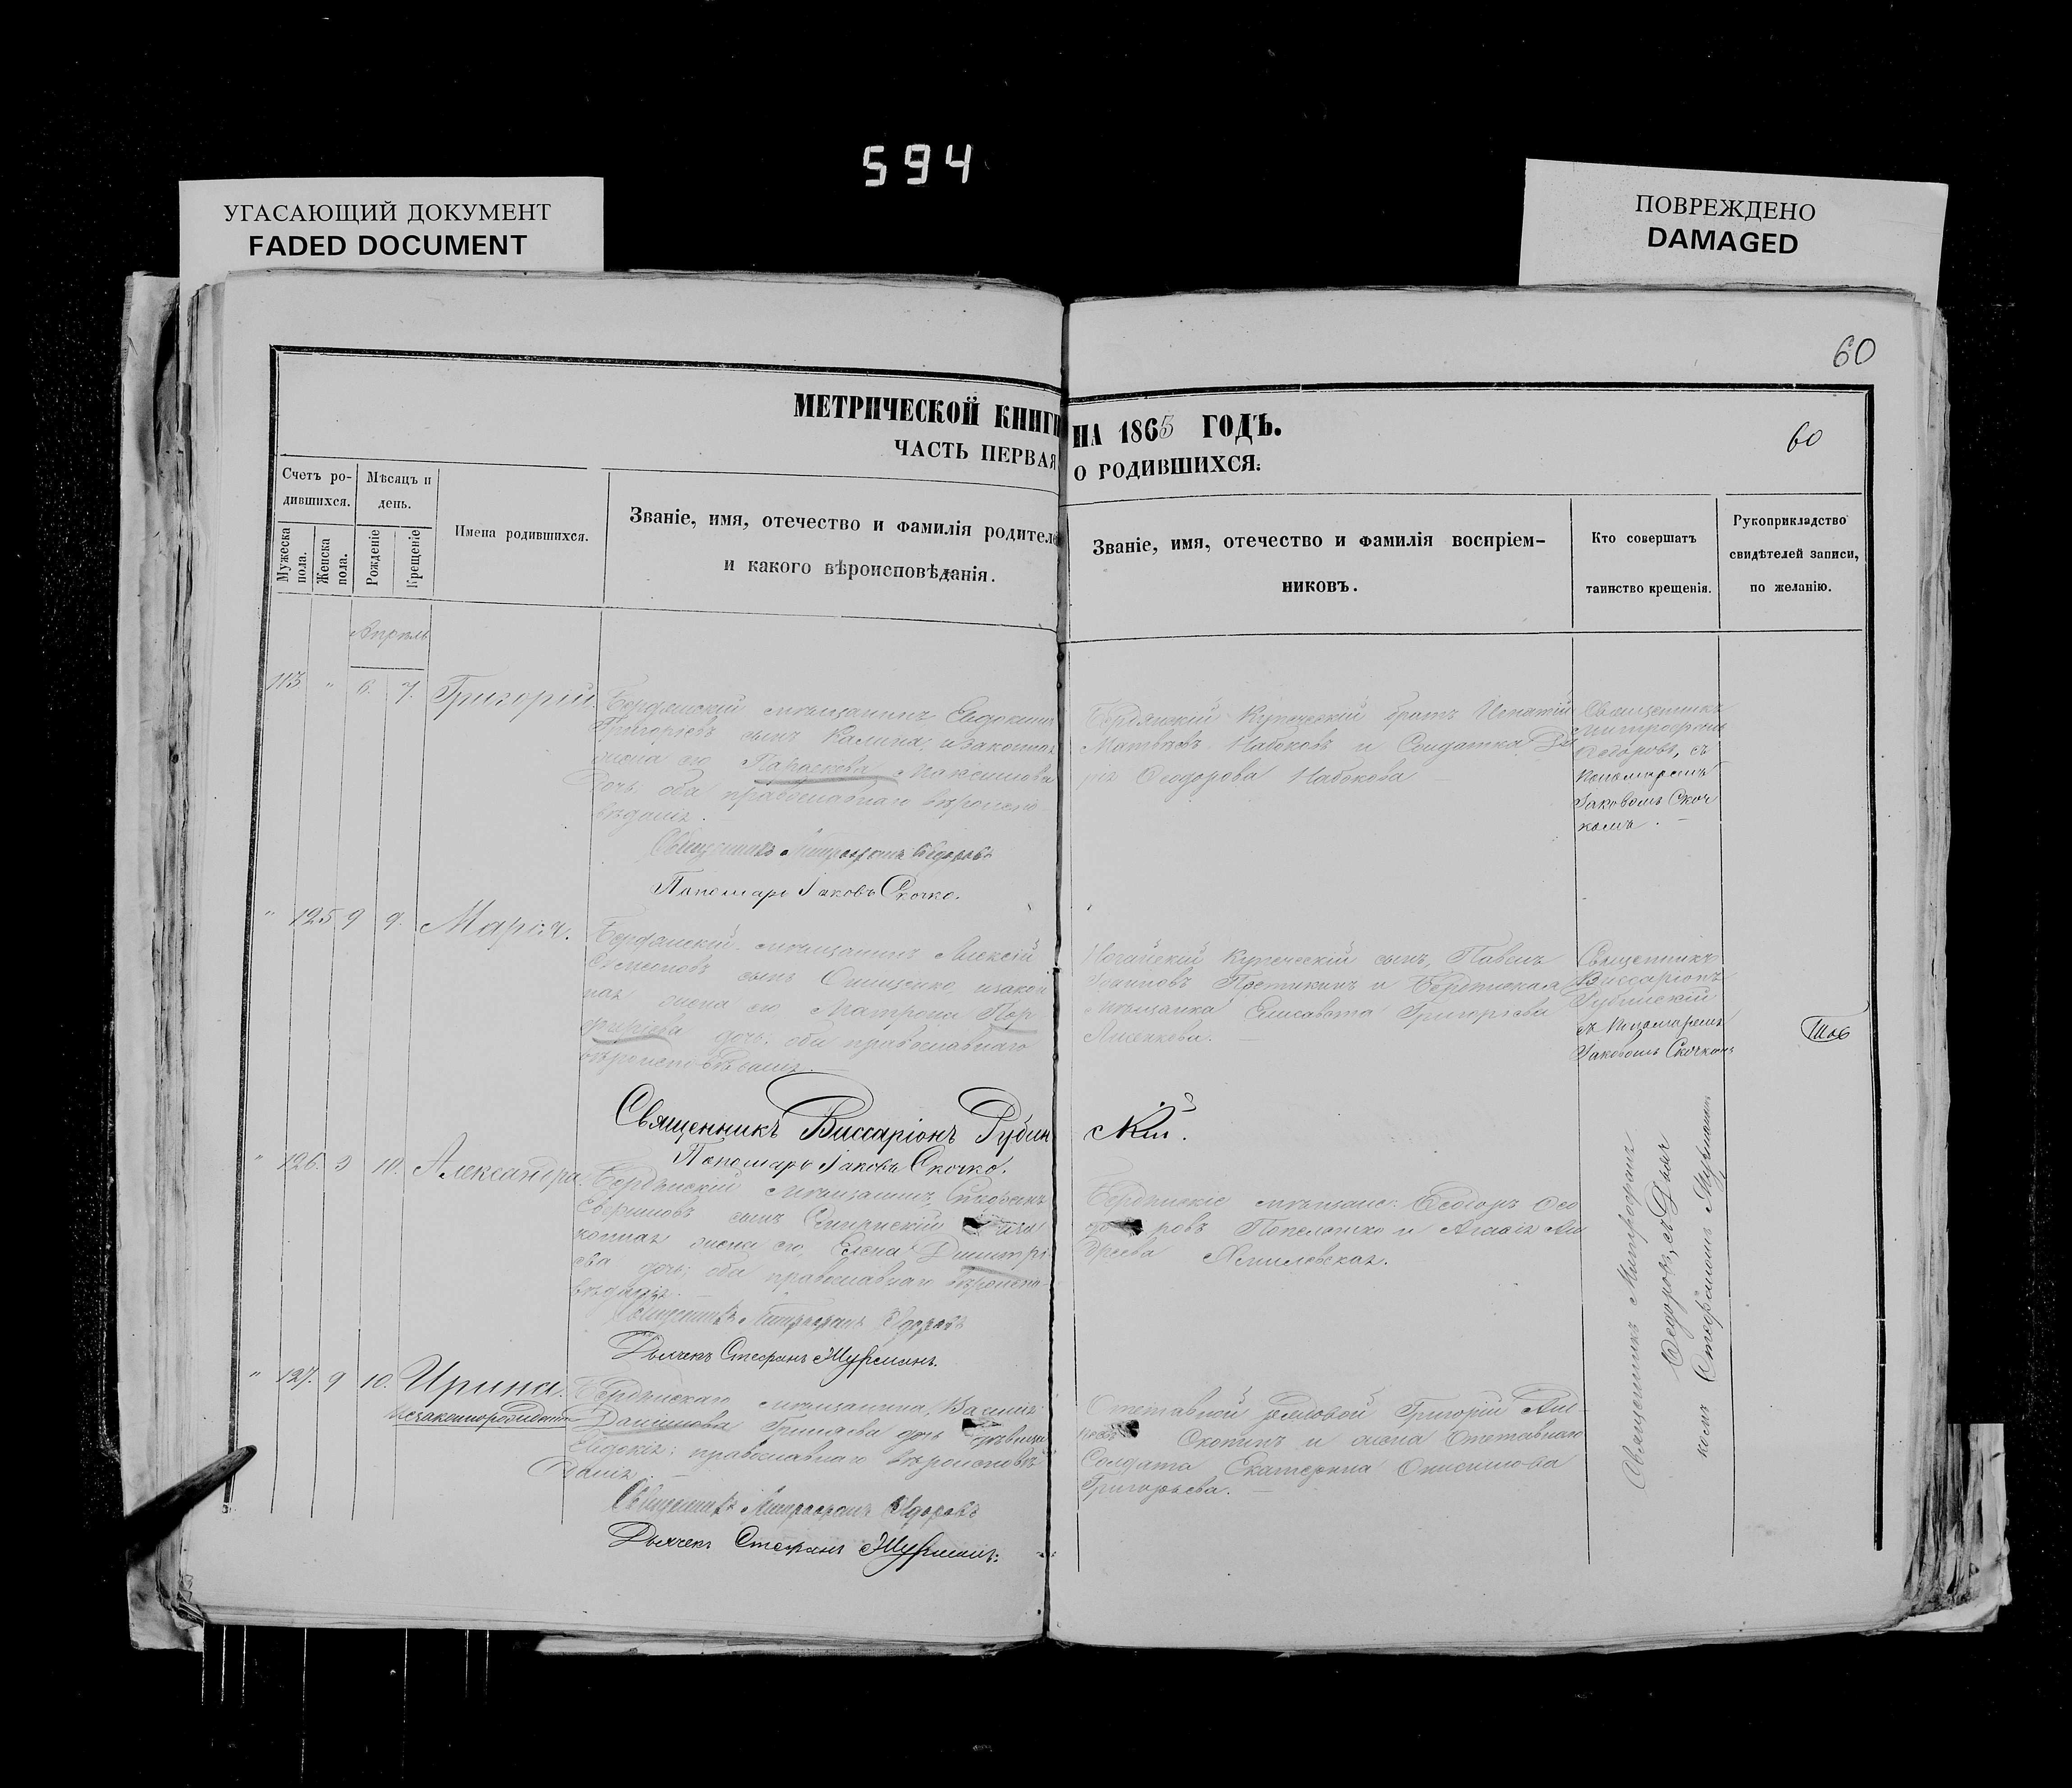 594
УГАСАЮЩИЙ ДОКУМЕНТ
FADED DOCUMENT
ПОВРЕЖДЕНО
DAMAGED
60
МЕТРИЧЕСКОЙ КНИГИ НА 1865 ГОДЪ.
60
ЧАСТЬ ПЕРВАЯ О РОДИВШИХСЯ.
Счетъ ро-
дившихся.
Мужеска пола.
Женска пола.
Мѣсяцъ и
день.
Рожденіе
Крещеніе
Имена родившихся.
Званіе, имя, отечество и фамилія родителе
и какого вѣроисповѣданія.
Званіе, имя, отечество и фамилія воспріем-
никовъ.
Кто совершатъ
таинство крещенія.
Рукоприкладство
свидѣтелей записи,
по желанію.
Апрѣль
113 " 6. 7. Григорій.
Бердянскій мѣщанинъ Евдокимъ
Григорьевъ сынъ Калина, и законная
жена его Параскева Максимова
дочь; оба православнаго вѣроиспо
вѣданія.
Священникъ Митрофанъ Ѳедоровъ
Пономарь Іаковъ Скочко.
Бердянскій Купеческій братъ Игнатій
Матвѣевъ Набоковъ и Солдатка
Ѳеодорова Набокова
Священникъ
Митрофанъ
Ѳедоровъ, съ
Пономаремъ
Іаковомъ Скоч
комъ.
" 125 9 9. Марія.
Бердянскій мѣщанинъ Алексій
Семеновъ сынъ Онищенко, и закон
ная жена его Матрона Пор
фиріева дочь; оба православнаго
вѣроисповѣданія.
Священникъ Виссаріонъ Рубин
скій.
Пономарь Іаковъ Скочко.
Ногайскій Купеческій сынъ, Павелъ
Іоанновъ и Бердянская
мѣщанка Елисавета Григорьева
Священникъ
Виссаріонъ
Рубинскій
съ Пономаремъ
Іаковомъ Скочкомъ
" 126. 9 10. Александра.
Бердянскій мѣщанинъ,
сынъ и за
конная жена его, Елена Димитрі
ева дочь; оба православнаго вѣроиспо
вѣданія.
Священникъ Митрофанъ Ѳедоровъ
Дьячекъ Стефанъ Журманъ.
Бердянскіе мѣщане: Ѳеодоръ Ѳео
доровъ и Агафія Ан
дреева
" 127. 9 10. Ирина.
Незаконнорожденная
Бердянскаго мѣщанина, Василія
Даніилова дочь дѣвица
Евдокія; православнаго вѣроисповѣ
данія.
Священникъ Митрофанъ Ѳедоровъ
Дьячекъ Стефанъ Журманъ.
Отставной рядовой Григорій
Скопинъ и жена Отставнаго
Солдата Екатерина Онисимова
Григорьева.
Священникъ Митрофанъ
Ѳедоровъ, съ Дьяч
комъ Стефаномъ Журманомъ